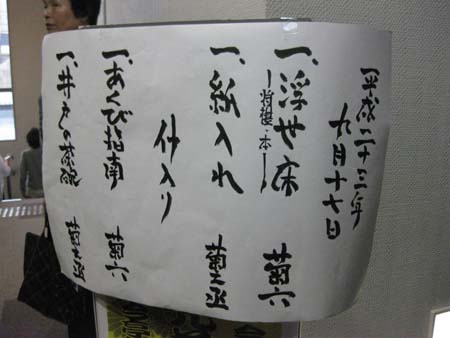 平成二十三年
九月十七日
一、浮世床
ー将棋・本ー
菊六
一、紙入れ
菊之丞
仲入り
一、あくび指南
菊六
一、井戸の茶碗
菊之丞